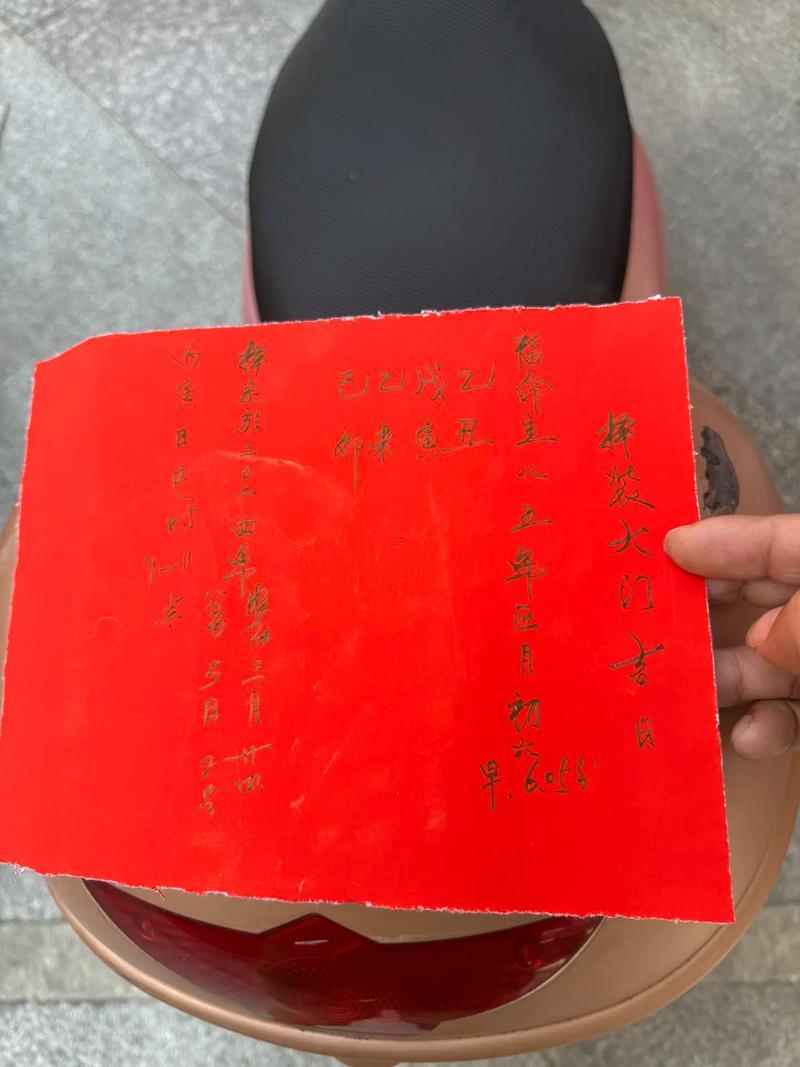 择装大门吉日
福命主八五年正月初六
早.6.05分
乙丑
戊寅
乙未
己卯
择定於二0二四年農三月廿四
5月2号
丙寅日巳时
9—11点